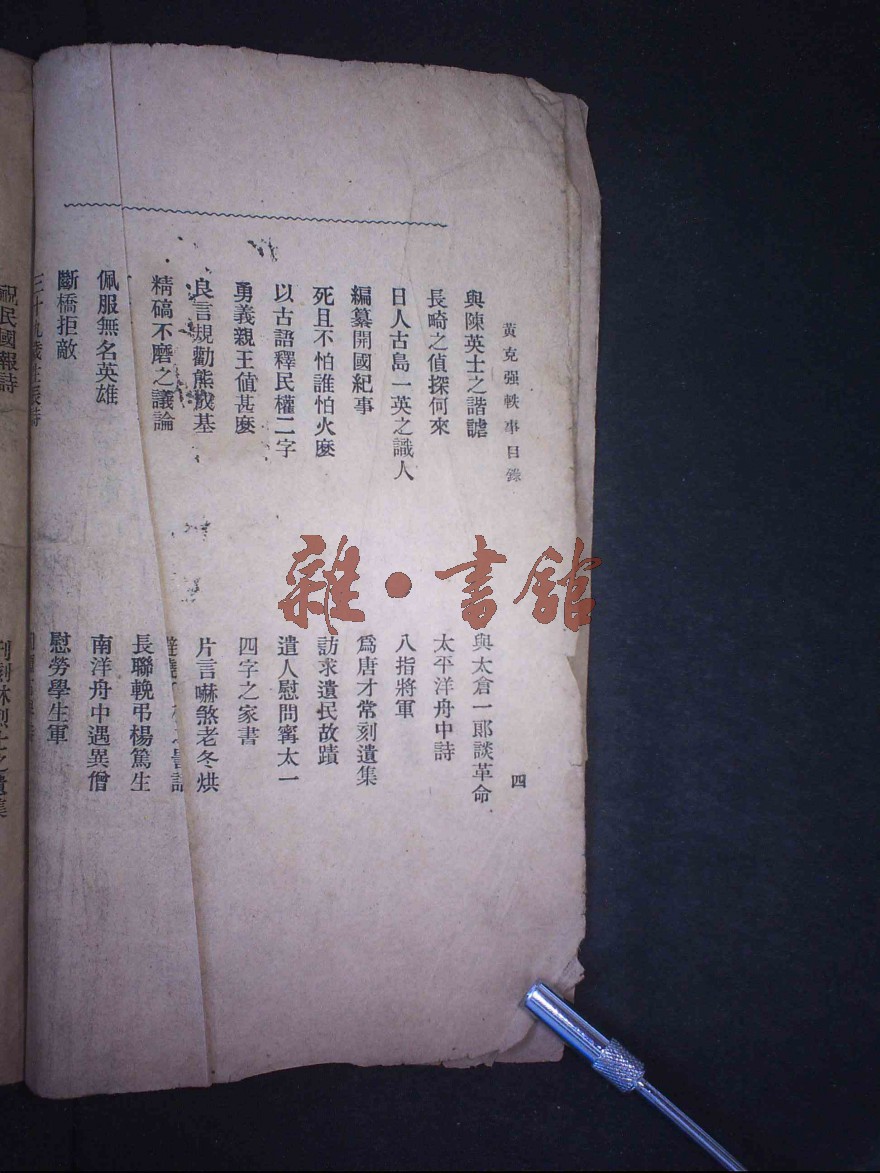 黃克强軼事目錄
四
與陳英士之諧謔
長崎之偵探何來
日人古島一英之識人
編纂開國紀事
死且不怕誰怕火麽
以古語釋民權二字
勇義親王値甚麽
良言規勸熊成基
精碻不磨之議論
佩服無名英雄
斷橋拒敵
三十九歲生辰詩
與太倉一郞談革命
太平洋舟中詩
八指將軍
爲唐才常刻遺集
訪求遺民故蹟
遣人慰問甯太一
四字之家書
片言嚇煞老冬烘
長聯輓弔楊篤生
南洋舟中遇異僧
慰勞學生軍
祝民國報詩
刊刻林烈士之遺集
雜·書館